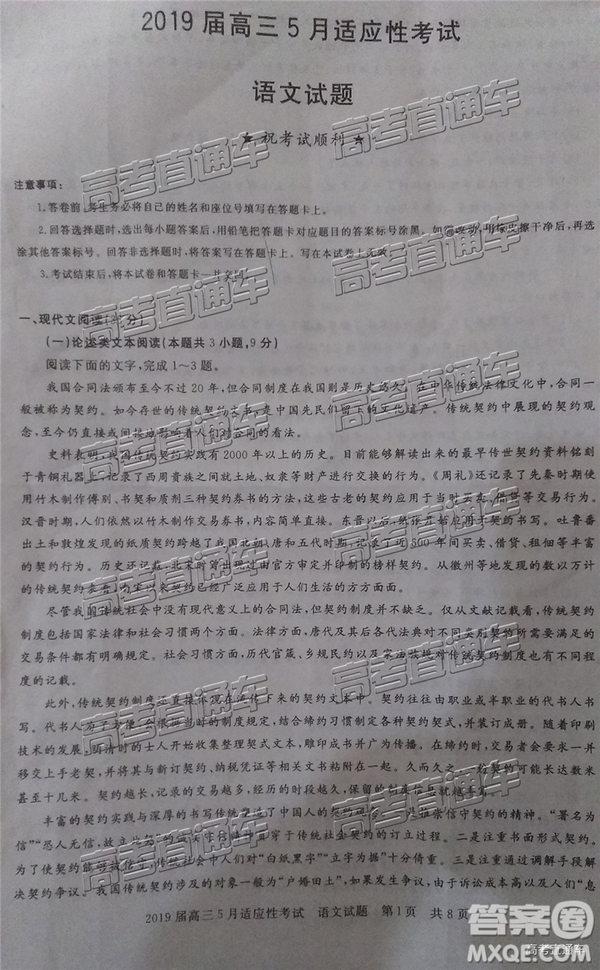 2019届高三5月适应性考试
语文试题
★祝考试顺利★
注意事项：
1.答卷前,考生务必将自己的姓名和座位号填写在答题卡上。
2.回答选择题时,选出每小题答案后,用铅笔把答题卡对应题目的答案标号涂黑。如需改动,用橡皮擦干净后,再选
涂其他答案标号。回答非选择题时,将答案写在答题卡上。写在本试卷上无效。
3.考试结束后,将本试卷和答题卡一并交回。
一、现代文阅读(分)
(一)论述类文本阅读(本题共3小题,9分)
阅读下面的文字,完成1～3题。
我国合同法颁布至今不过20年,但合同制度在我国则是历史悠久。在中华传统法律文化中,合同一
般被称为契约。如今存世的传统契约文书,是中国先民们留下的文化遗产。传统契约中展现的契约观
念,至今仍直接或间接地影响着人们对合同的看法。
史料表明,我国传统契约实践有2000年以上的历史。目前能够解读出来的最早传世契约资料铭刻
于青铜礼器上,记录了西周贵族之间就土地、奴隶等财产进行交换的行为。《周礼》还记录了先秦时期使
用竹木制作傅别、书契和质剂三种契约券书的方法,这些古老的契约可用于当时买卖、借贷等交易行为。
汉晋时期,人们依然以竹木制作交易券书,内容更直接。东晋以后,纸张作为契约载体开始使用。吐鲁番
出土和敦煌发现的纸质契约跨越了我国北朝、唐和五代时期,记录了近500年间买卖、借贷、租佃等丰富
的契约行为。历史还记载,北宋时曾出现过由官方审定并印制的榜样契约。从徽州等地发现的数以万计
的传统契约来看,南宋以来契约已经广泛应用于人们生活的方方面面。
尽管我国传统社会中没有现代意义上的合同法,但契约制度并不缺乏。仅从文献记载看,传统契约
制度包括国家法律和社会习惯两个方面。法律方面,唐代及其后各代法典对不同的契约关系所应满足的
交易条件都有明确规定。社会习惯方面,历代官箴、乡规民约以及宗族族规对传统契约制度也有不同程
度的记载。
此外,传统契约制度还直接反映在流传下来的契约文本中。契约往往由职业或半职业的代书人书
写。代书人为了方便,会很据当时的制度规定,结合缔约习惯制定各种契约样式。随着造纸术和印刷
技术的发展,明清时的士人开始收集整理契式文本,雕印成书并广为传播。在缔约时,交易者会要求一并
移交上手老契,并将其与新订契约、纳税凭证等相关文书粘附在一起。因此,一份契约的长度可能长达数米
甚至十几米。契约越长,记录的交易越多,经历的历史越长,保留的制度信息就越丰富。
丰富的契约实践与深厚的书写传统塑造了中国人的契约观念。一是推张信守契约的精神。“署名为
信”“恐人无信,故立此契”等信守契约的套语贯穿于传统社会契约的订立过程。二是注重书面形式契约。
为了契约能够被执行,传统社会中人们对“白纸黑字”“立字为据”十分倚重。三是注重通过调解手段解
决契约争议。我国传统契约涉及的对象一般是“户婚田土”,如果发生争议,由于诉讼成本高以及人们“息
2019届高三5月适应性考试　语文试题　第1页　共8页
高考直通车
高考直通车
高考直通车
高考直通车
高考直通车
高考直通车
高考直通车
答案圈
MXQE.COM
高考直通车